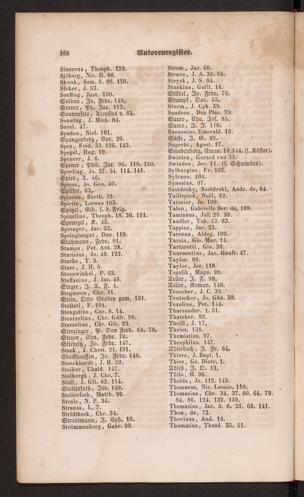 168
Autorenregister.
Sincerus, Theoph. 128.
Sjöborg, Nic. H. 60.
Skonk, Sam. S. 98. 110.
Sleker, J. 53.
Soefling, Just. 150.
Soldan, Jo. Frdr. 148.
Somer, Ph. Jac. 112.
Sonnenfels, Aloysius v. 63.
Sonntag, J. Mich. 84.
Sorel. 47.
Spadon, Niel. 101.
Spangenberg, Geo. 29.
Spee, Frid. 53. 126. 142.
Spegel, Hag. 19.
Spencer, J. 6.
Spener, Phil. Jac. 98. 118. 150.
Sperling, Jo. 37. 54. 114. 141.
Spied, X. 46.
Spiess, Jo. Geo. 40.
Spilker, 63.
Spineus, Barth. 31.
Spirito, Lorenz. 103.
Spitzel, Gib. s. d. Folg.
Spizelius, Theoph. 18. 30. 111.
Sprengel, K. 45.
Sprenger, Jac. 32.
Springinsgut, Dan. 119.
Stahmann, Frdr. 91.
Stampa, Pet. Ant. 28.
Staricius, Jo. 49. 123.
Starke, T. 5.
Staus, J. H. 5.
Steenwinkel, P. 62.
Steffanius, J. Jac. 45.
Steger, J. X. F. 4.
Stegmann, Chr. 31.
Stein, Otto Grafen zum, 131.
Stellati, F. 104.
Stengelius, Car. 8. 14.
Stentzelius, Chr. Gdfr. 99.
Sternelius, Chr. Gfr. 23.
Stetzinger, P. Don Ferd. 65. 78.
Stiebriz, Jo. Frdr. 147.
Stock, J. Chrst. 21. 131.
Stockhausen, Jo. Frdr. 146.
Stoeckhardt, J. H. 22.
Stoiber, Ubald. 147.
Stolbergk, J. Chr. 7.
Stoll, J. Gli. 63. 114.
Stolterfoth, Jac. 150.
Stolterfoth, Matth. 99.
Strals, N. P. 34.
Strauss, L. 7.
Strödtbeck, Chr. 34.
Strodtmann, J. Sph. 18.
Strömmenberg, Gabr. 99.
Strom, Jac. 60.
Struve, J. A. 38. 85.
Stryck, J. S. 84.
Stuckius, Guill. 14.
Stübel, Jo. Frdr. 76.
Stumpf, Dav. 55.
Sturm, J. Cph. 59.
Suadens, Deo Pioc. 79.
Sucro, Chr. Jos. 85.
Sucro, J. J. 110.
Suenonius, Emerald. 15.
Süsse, J. G. 92.
Superbi, Agost. 17.
Swinden, Jer. 11.
Sylburgius, Fr. 102.
Sylvano, 104.
Synesius, 97.
Szathmáry, Szotdski, Andr. de, 64.
Taillepied, Noël, 82.
Taisnier, Jo. 100.
Talon, Gabrielle Ser. de, 108.
Tandler, Tob. 42. 53.
Tappius, Jac. 23.
Tarrona, Aldeg. 109.
Tarsia, Gio. Mar. 14.
Tartarotti, Gio. 36.
Taurnentius, Jac. Gaufr. 47.
Taylor. 88.
Taylor, Jer. 110.
Teller, J. F. 90.
Teller, Roman. 148.
Tentzelius, Pet. 144.
Tharsander. 1. 51.
Thatcher. 92.
Theill, J. 17.
Theiss. 138.
Themistius. 97.
Theophilus. 147.
Thiebault, J. Fr. 64.
Thiers, J. Bapt. 1.
Thies, Ge. Dietr. 1.
Thilo. H. 96.
Tholdo, Ja. 112. 143.
Thomaeus, Nic. Leonic. 110.
Thomasius, Chr. 34. 37. 60. 64. 79.
84. 86. 124. 132. 152.
Thomasius, Jac. 5. 8. 21. 69. 141.
Thou, de, 73.
Thovius, And. 15.
Thummius, Theod. 35. 51.